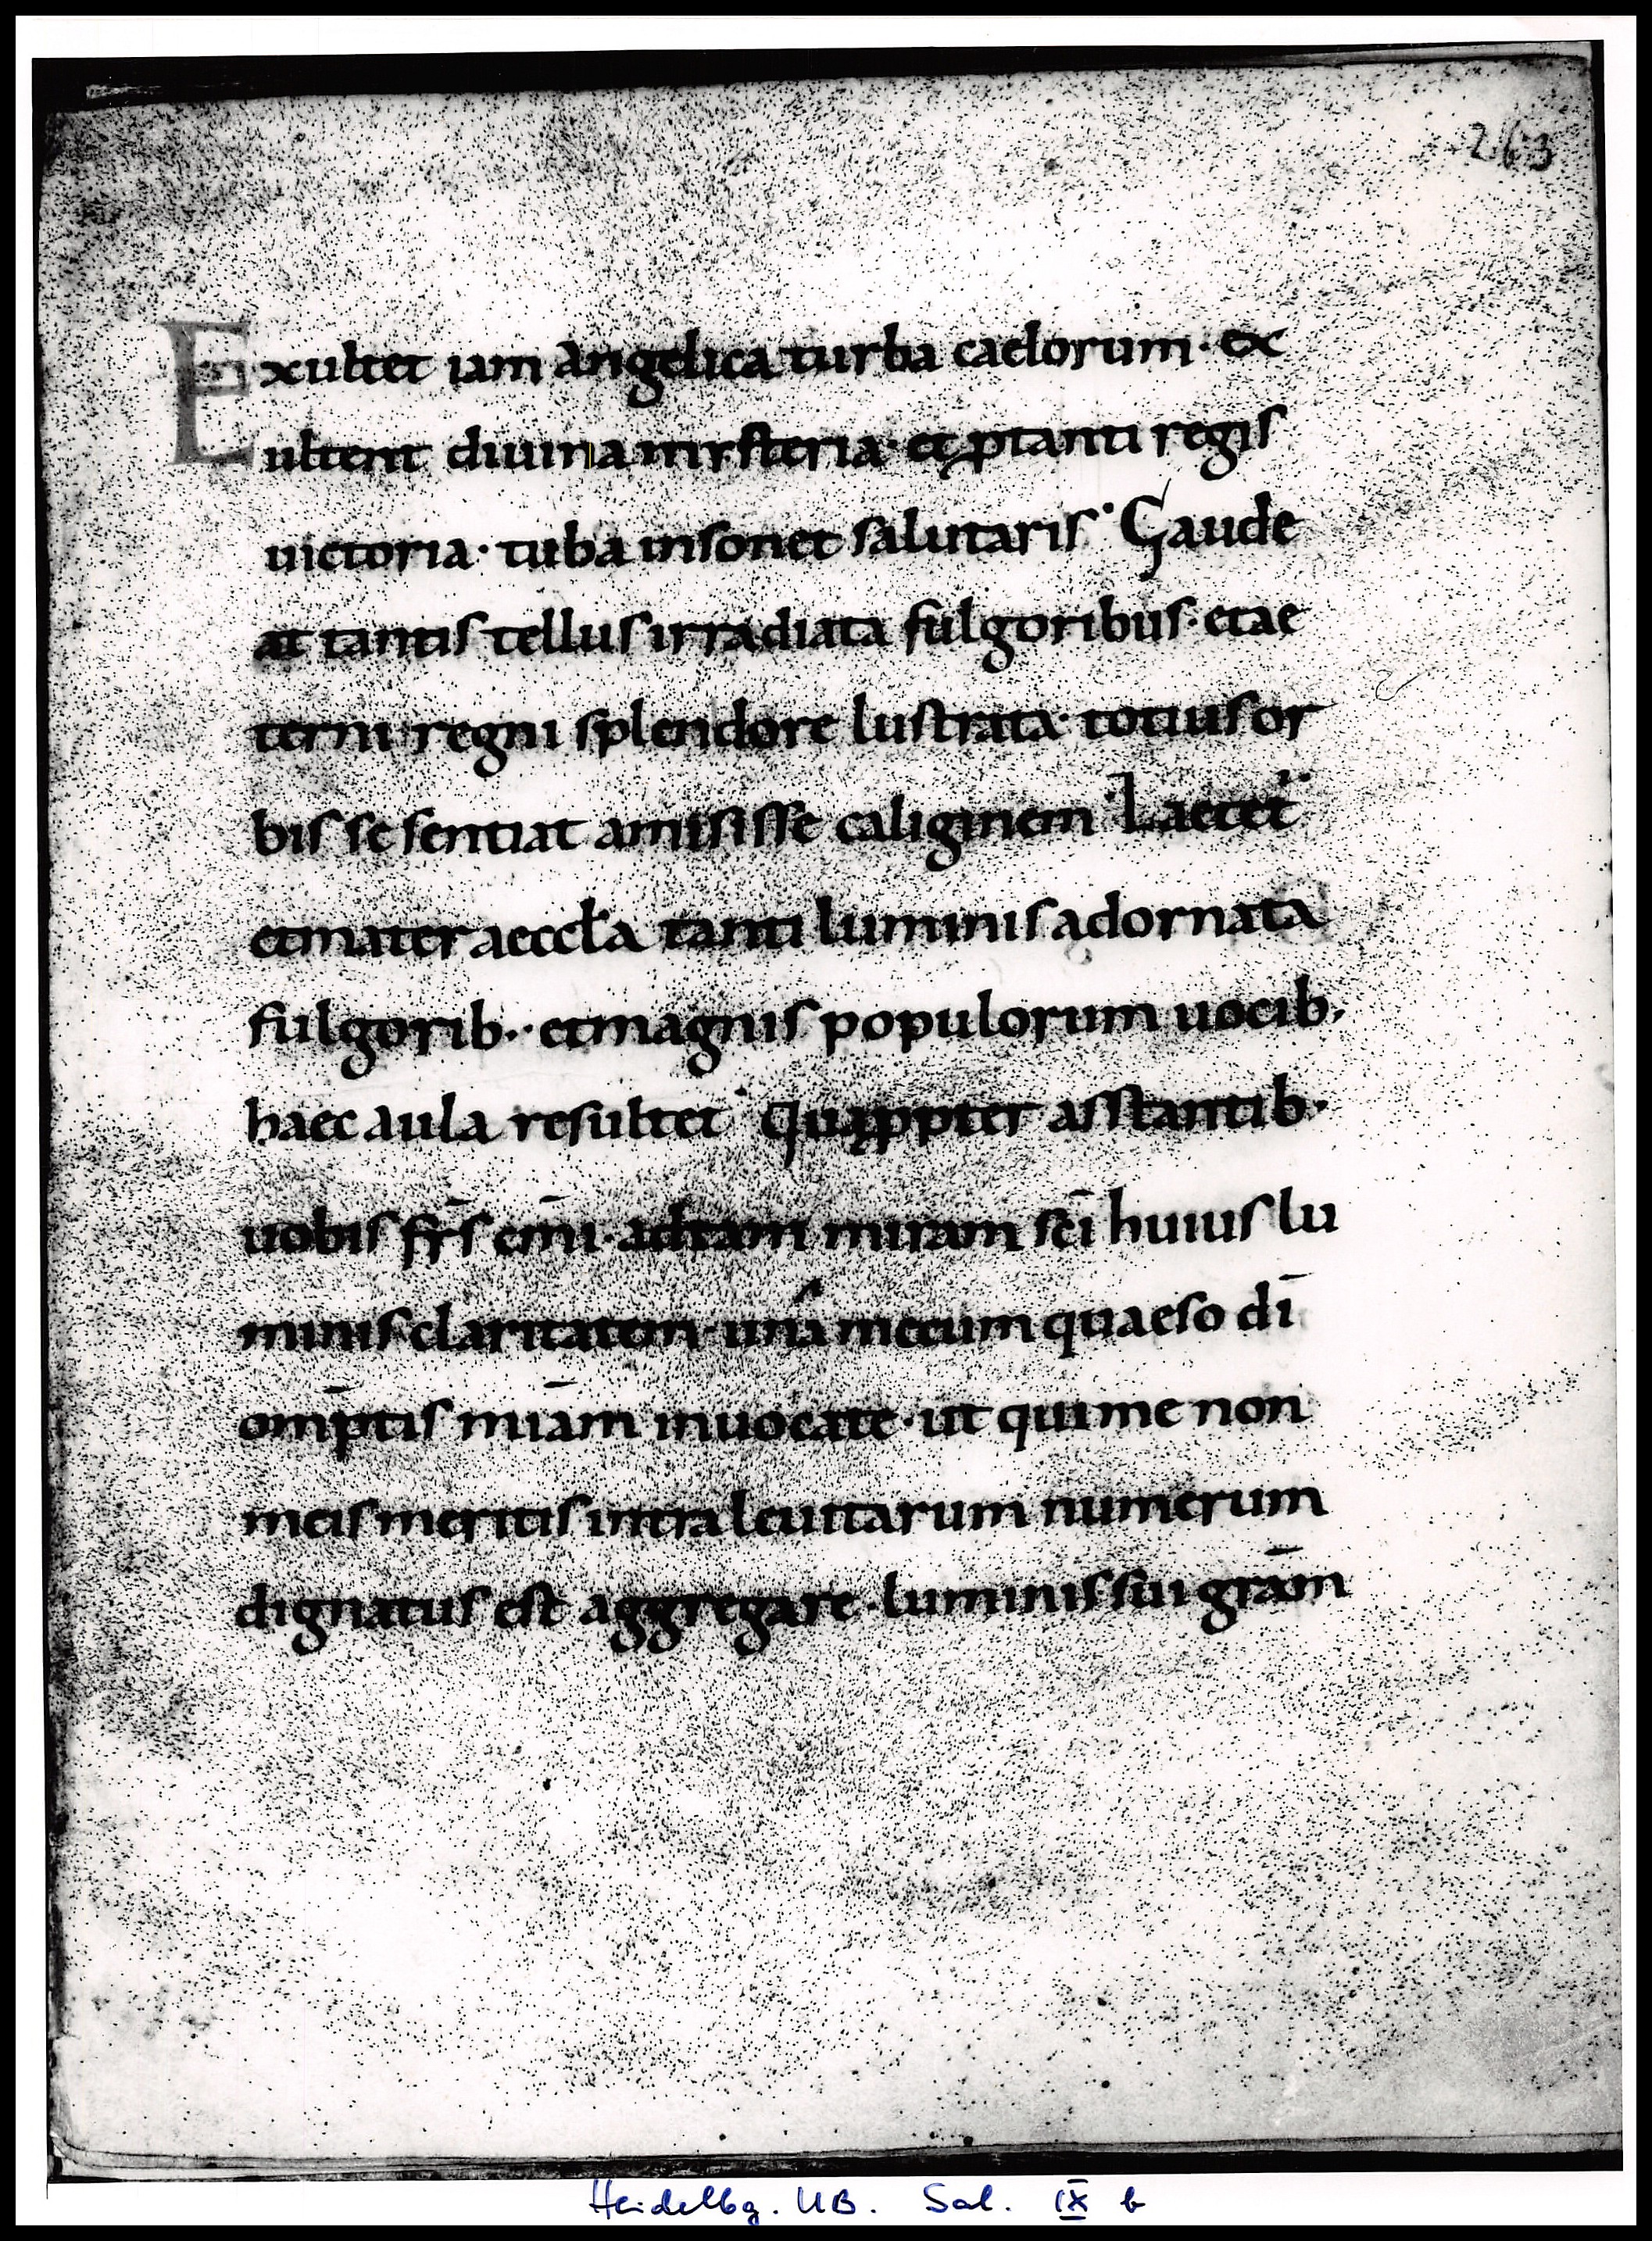 263
Exultet iam angelica turba caelorum · ex
ultent diuina mysteria · et ꝓ tanti regis
uictoria · tuba insonet salutaris · Gaude
at tantis tellus irradiata fulgoribus · et ae
terni regni splendore lustrata · totius or
bis se sentiat amisisse caliginem · Laetet᷑
et mater aeccl̄a tanti luminis adornata
fulgorib · · et magnis populorum uocib ·
haec aula resultet · Quaꝓpter asstantib ·
uobis fr̄s cm̄i · ad tam miram sc̄i huius lu
minis claritatem · uná mecum quaeso dī
om̄ptis miām inuocate · ut qui me non
meis meritis intra leuitarum numerum
dignatus est aggregare · luminis sui grām
Heidelbg. UB. Sal. IX b